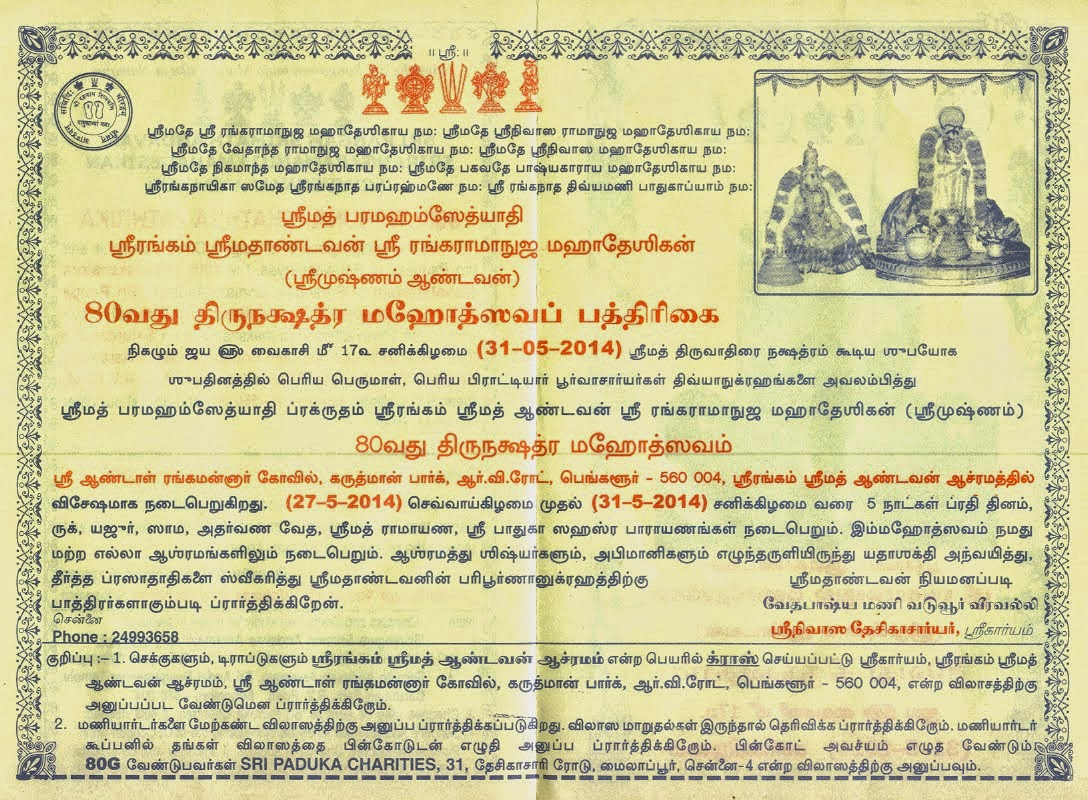 ॥ ஸ்ரீ: ॥
ஸ்ரீமதே ஸ்ரீ ரங்கராமாநுஜ மஹாதேஶிகாய நம: ஸ்ரீமதே ஸ்ரீநிவாஸ ராமாநுஜ மஹாதேஶிகாய நம:
ஸ்ரீமதே வேதாந்த ராமாநுஜ மஹாதேஶிகாய நம: ஸ்ரீமதே ஸ்ரீநிவாஸ மஹாதேஶிகாய நம:
ஸ்ரீமதே நிகமாந்த மஹாதேஶிகாய நம: ஸ்ரீமதே பகவதே பாஷ்யகாராய மஹாதேஶிகாய நம:
ஸ்ரீரங்கநாயிகா ஸமேத ஸ்ரீரங்கநாத பரப்ரஹ்மணே நம: ஸ்ரீ ரங்கநாத திவ்யமணி பாதுகாப்யாம் நம:
ஸ்ரீமத் பரமஹம்ஸேத்யாதி
ஸ்ரீரங்கம் ஸ்ரீமதாண்டவன் ஸ்ரீ ரங்கராமாநுஜ மஹாதேஶிகன்
(ஸ்ரீமுஷ்ணம் ஆண்டவன்)
80வது திருநக்ஷத்ர மஹோத்ஸவப் பத்திரிகை
நிகழும் ஜய ௵ வைகாசி மீ 17உ சனிக்கிழமை (31-05-2014) ஸ்ரீமத் திருவாதிரை நக்ஷத்ரம் கூடிய ஶுபயோக
ஶுபதினத்தில் பெரிய பெருமாள், பெரிய பிராட்டியார் பூர்வாசார்யர்கள் திவ்யாநுக்ரஹங்களை அவலம்பித்து
ஸ்ரீமத் பரமஹம்ஸேத்யாதி ப்ரக்ருதம் ஸ்ரீரங்கம் ஸ்ரீமத் ஆண்டவன் ஸ்ரீ ரங்கராமாநுஜ மஹாதேஶிகன் (ஸ்ரீமுஷ்ணம்)
80வது திருநக்ஷத்ர மஹோத்ஸவம்
ஸ்ரீ ஆண்டாள் ரங்கமன்னார் கோவில், கருத்மான் பார்க், ஆர்.வி.ரோட், பெங்களூர் - 560 004, ஸ்ரீரங்கம் ஸ்ரீமத் ஆண்டவன் ஆச்ரமத்தில்
விசேஷமாக நடைபெறுகிறது. (27-5-2014) செவ்வாய்கிழமை முதல் (31-5-2014) சனிக்கிழமை வரை 5 நாட்கள் ப்ரதி தினம்,
ருக், யஜுர், ஸாம, அதர்வண வேத, ஸ்ரீமத் ராமாயண, ஸ்ரீ பாதுகா ஸஹஸ்ர பாராயணங்கள் நடைபெறும். இம்மஹோத்ஸவம் நமது
மற்ற எல்லா ஆஶ்ரமங்களிலும் நடைபெறும். ஆஶ்ரமத்து ஶிஷ்யர்களும், அபிமானிகளும் எழுந்தருளியிருந்து யதாஶக்தி அந்வயித்து,
தீர்த்த ப்ரஸாதாதிகளை ஸ்வீகரித்து ஸ்ரீமதாண்டவனின் பரிபூர்ணானுக்ரஹத்திற்கு
பாத்திரர்களாகும்படி ப்ரார்த்திக்கிறேன்.
ஸ்ரீமதாண்டவன் நியமனப்படி
வேதபாஷ்ய மணி வடுவூர் வீரவல்லி
ஸ்ரீநிவாஸ தேசிகாசார்யர், ஸ்ரீகார்யம்
சென்னை
Phone : 24993658
குறிப்பு :- 1. செக்குகளும், டிராப்டுகளும் ஸ்ரீரங்கம் ஸ்ரீமத் ஆண்டவன் ஆச்ரமம் என்ற பெயரில் க்ராஸ் செய்யப்பட்டு ஸ்ரீகார்யம், ஸ்ரீரங்கம் ஸ்ரீமத்
ஆண்டவன் ஆச்ரமம், ஸ்ரீ ஆண்டாள் ரங்கமன்னார் கோவில், கருத்மான் பார்க், ஆர்.வி.ரோட், பெங்களூர் - 560 004, என்ற விலாசத்திற்கு
அனுப்பப்பட வேண்டுமென ப்ரார்த்திக்கிரேம்.
2. மணியார்டர்களை மேற்கண்ட விலாஸத்திற்கு அனுப்ப ப்ரார்த்திக்கப்படுகிறது. விலாஸ மாறுதல்கள் இருந்தால் தெரிவிக்க ப்ரார்த்திக்கிரேம். மணியார்டர்
கூப்பனில் தங்கள் விலாஸத்தை பின்கோடுடன் எழுதி அனுப்ப ப்ரார்த்திக்கிரேம். பின்கோட் அவச்யம் எழுத வேண்டும்
80G வேண்டுபவர்கள் SRI PADUKA CHARITIES, 31, தேசிகாசாரி ரோடு, மைலாப்பூர், சென்னை-4 என்ற விலாஸத்திற்கு அனுப்பவும்.